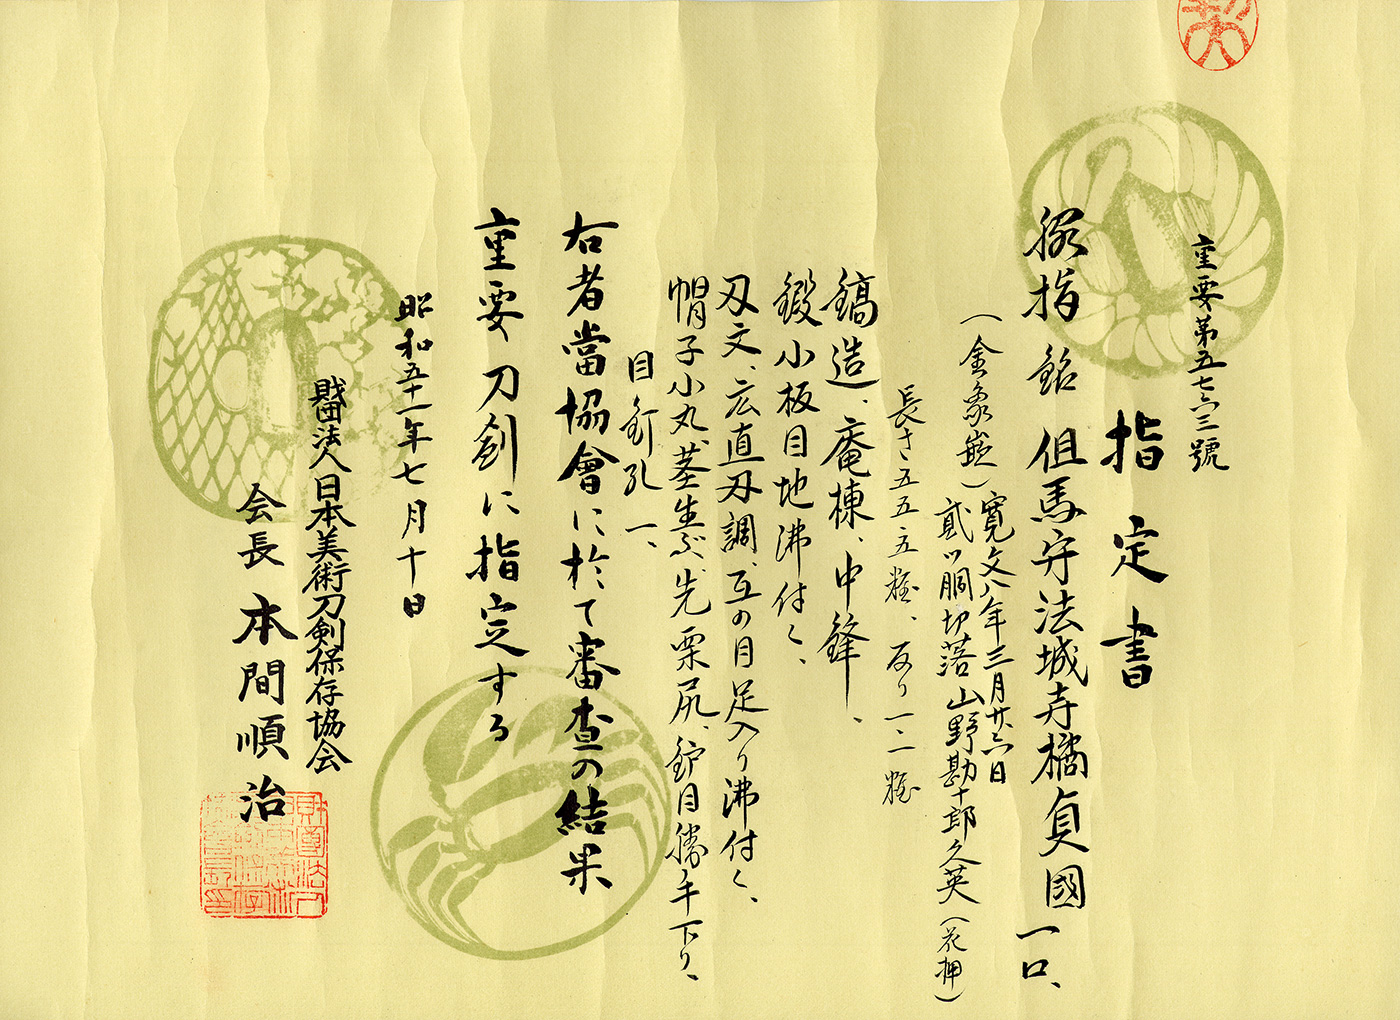 重要第五七六三號
指定書
脇指 銘 但馬守法城寺橘貞國 一口、
(金象嵌)寛文八年三月廿六日
貳ツ胴切落山野勘十郎久英(花押)
長さ五五・五糎、反り一・二糎
鎬造、庵棟、中鋒、
鍛小板目地沸付く、
刃文、広直刃調、互の目足入り沸付く、
帽子小丸、茎生ぶ、先栗尻、鑢目勝手下り、
目釘孔一、
右者當協會に於て審査の結果
重要刀剣に指定する
昭和五十一年七月十日
財団法人日本美術刀剣保存協会
会長 本間順治